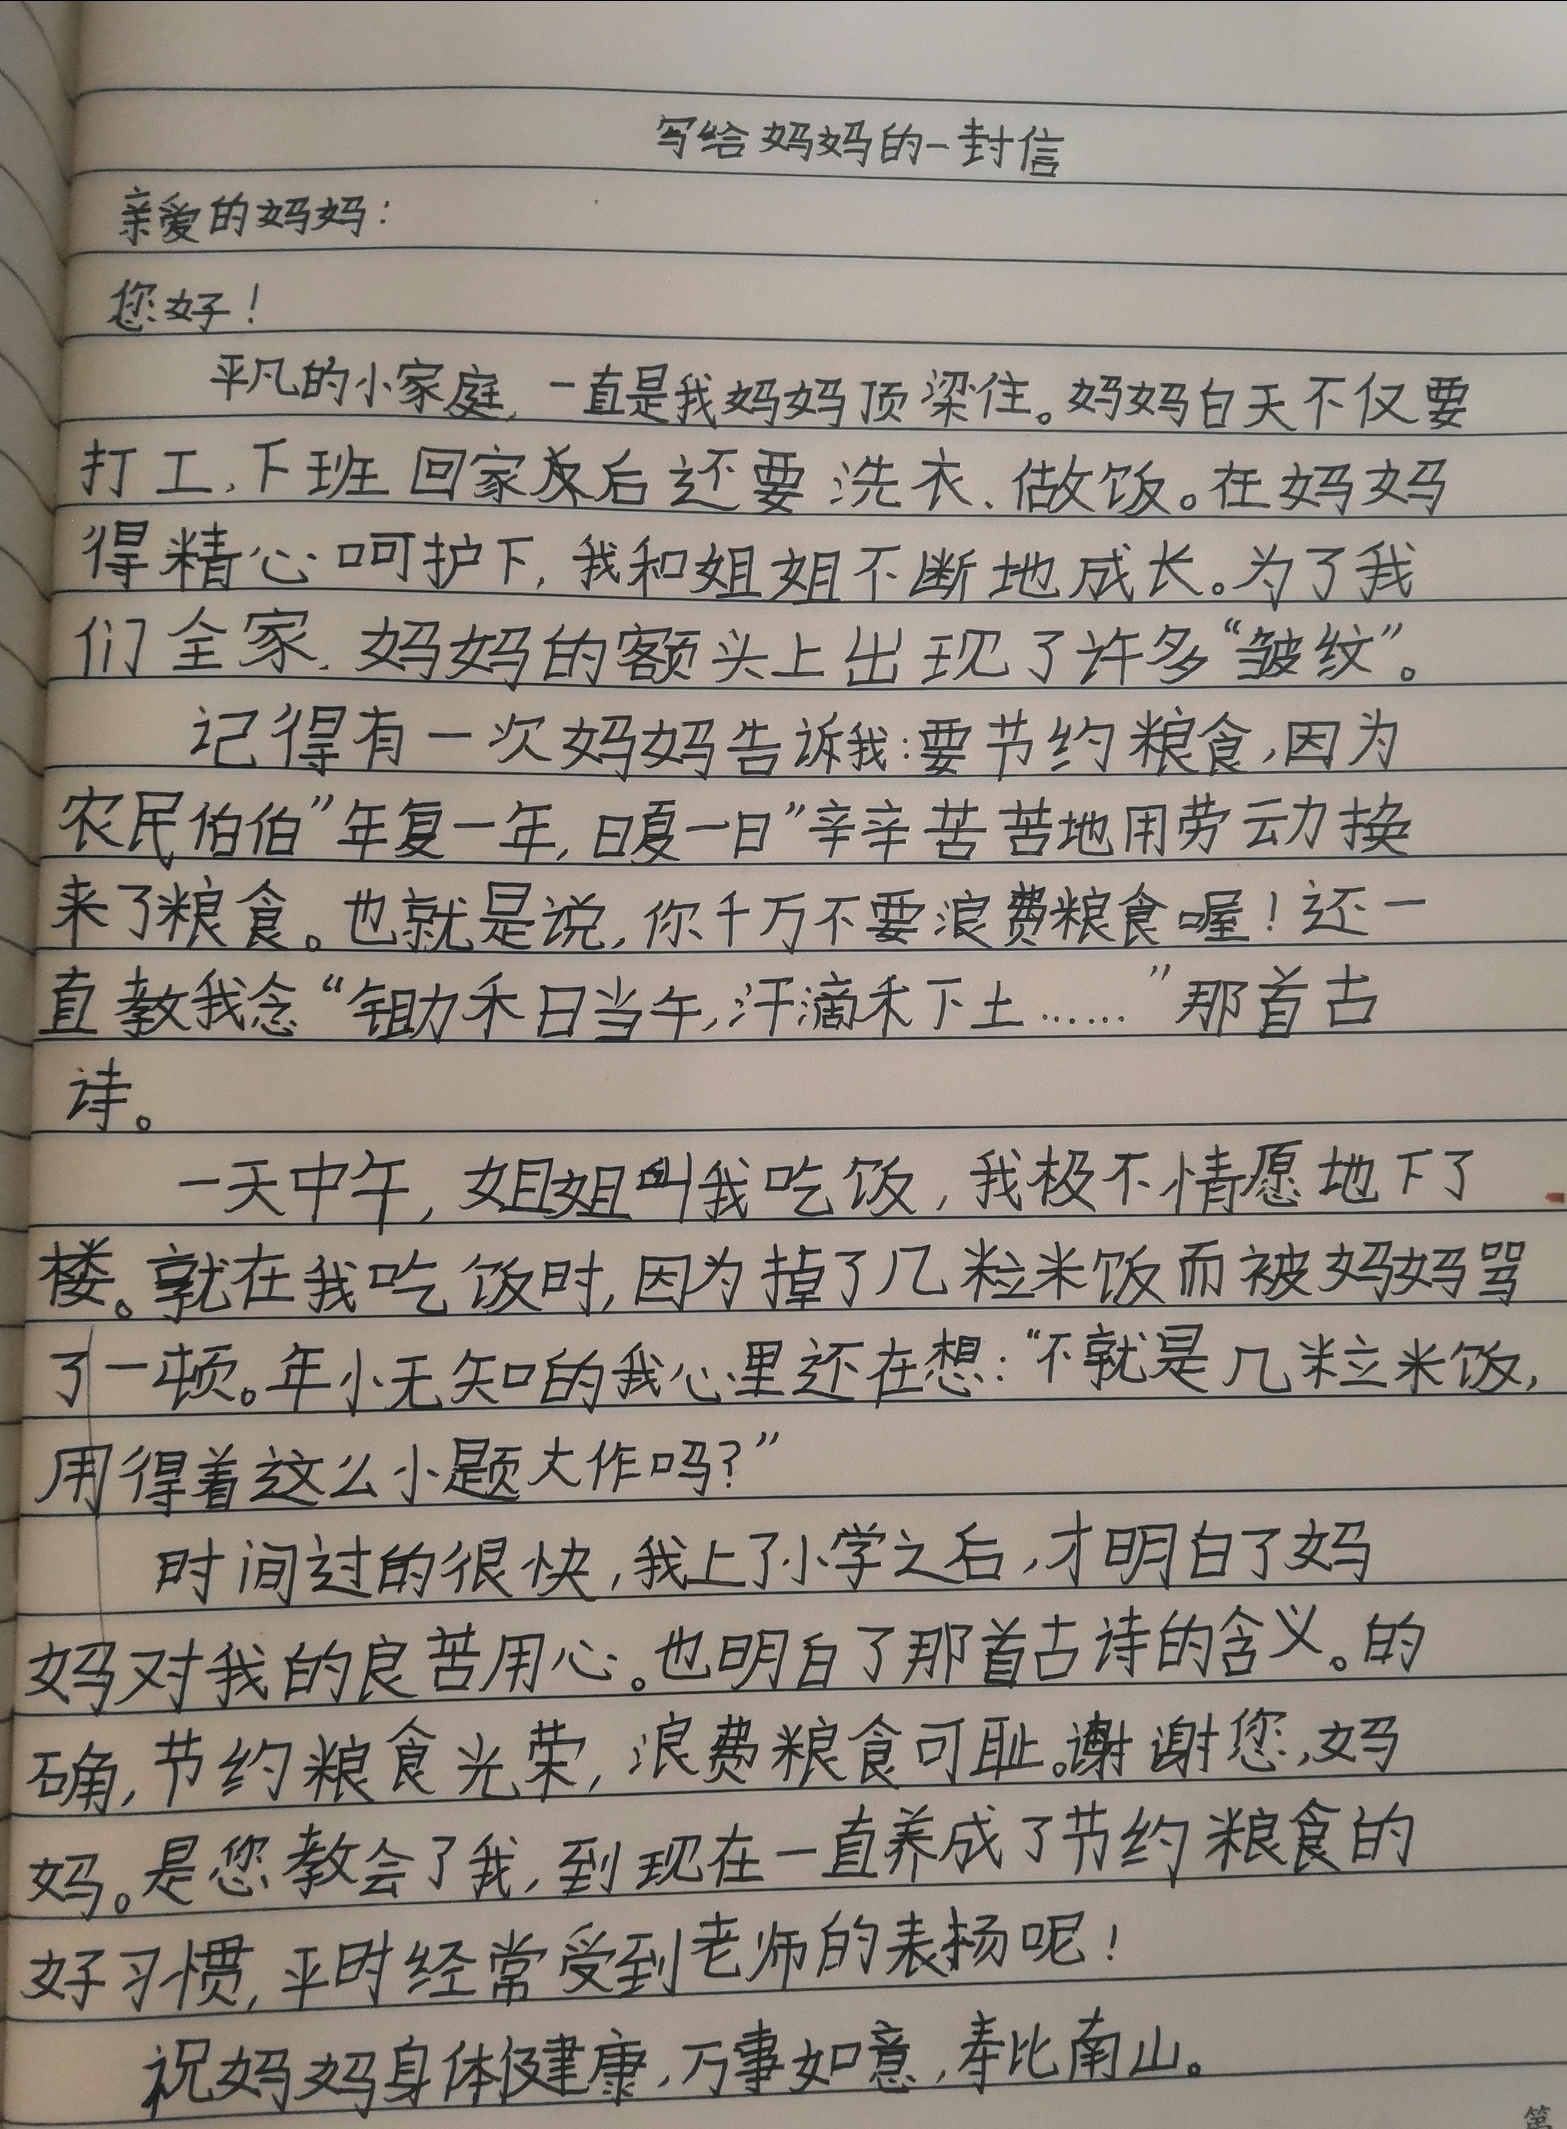 写给妈妈的一封信
亲爱的妈妈：
您好！
平凡的小家庭，一直是我妈妈顶梁住。妈妈白天不仅要
打工，下班回家后还要洗衣、做饭。在妈妈
得精心呵护下，我和姐姐不断地成长。为了我
们全家，妈妈的额头上出现了许多“皱纹”。
记得有一次妈妈告诉我：要节约粮食，因为
农民伯伯”年复一年，日复一日”辛辛苦苦地用劳动换
来了粮食。也就是说，你千万不要浪费粮食喔！还一
直教我念“锄禾日当午，汗滴禾下土……”那首古
诗。
一天中午，姐姐叫我吃饭，我极不情愿地下了
楼。就在我吃饭时，因为掉了几粒米饭而被妈妈骂
了一顿。年小无知的我心里还在想：“不就是几粒米饭，
用得着这么小题大作吗？”
时间过的很快，我上了小学之后，才明白了妈
妈对我的良苦用心。也明白了那首古诗的含义。的
确，节约粮食光荣，浪费粮食可耻。谢谢您，妈
妈。是您教会了我，到现在一直养成了节约粮食的
好习惯，平时经常受到老师的表扬呢！
祝妈妈身体健康，万事如意，寿比南山。
第